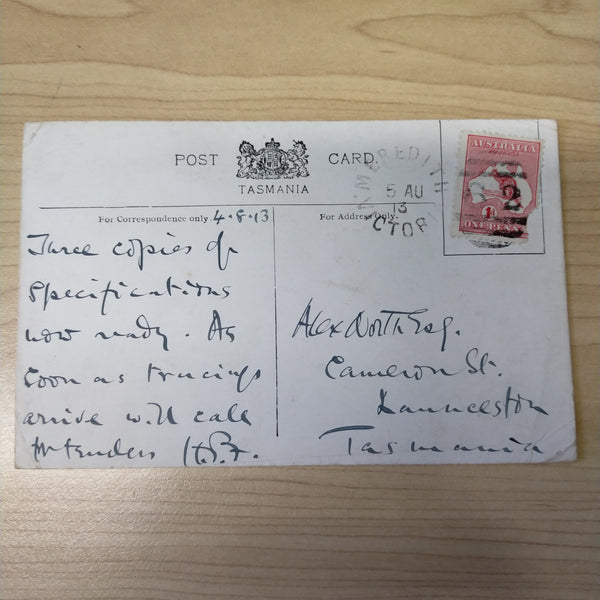 POST CARD.
TASMANIA
For Correspondence only. 4.8.13
Three copies of
Specifications
now ready. As
soon as tracings
arrive will call
for tenders H.B.F.
For Address Only.
Alex North Esq.
Cameron St.
Launceston
Tasmania
MEREDITH
5 AU
13
CTOR
AUSTRALIA
POSTAGE
1D
ONE PENNY